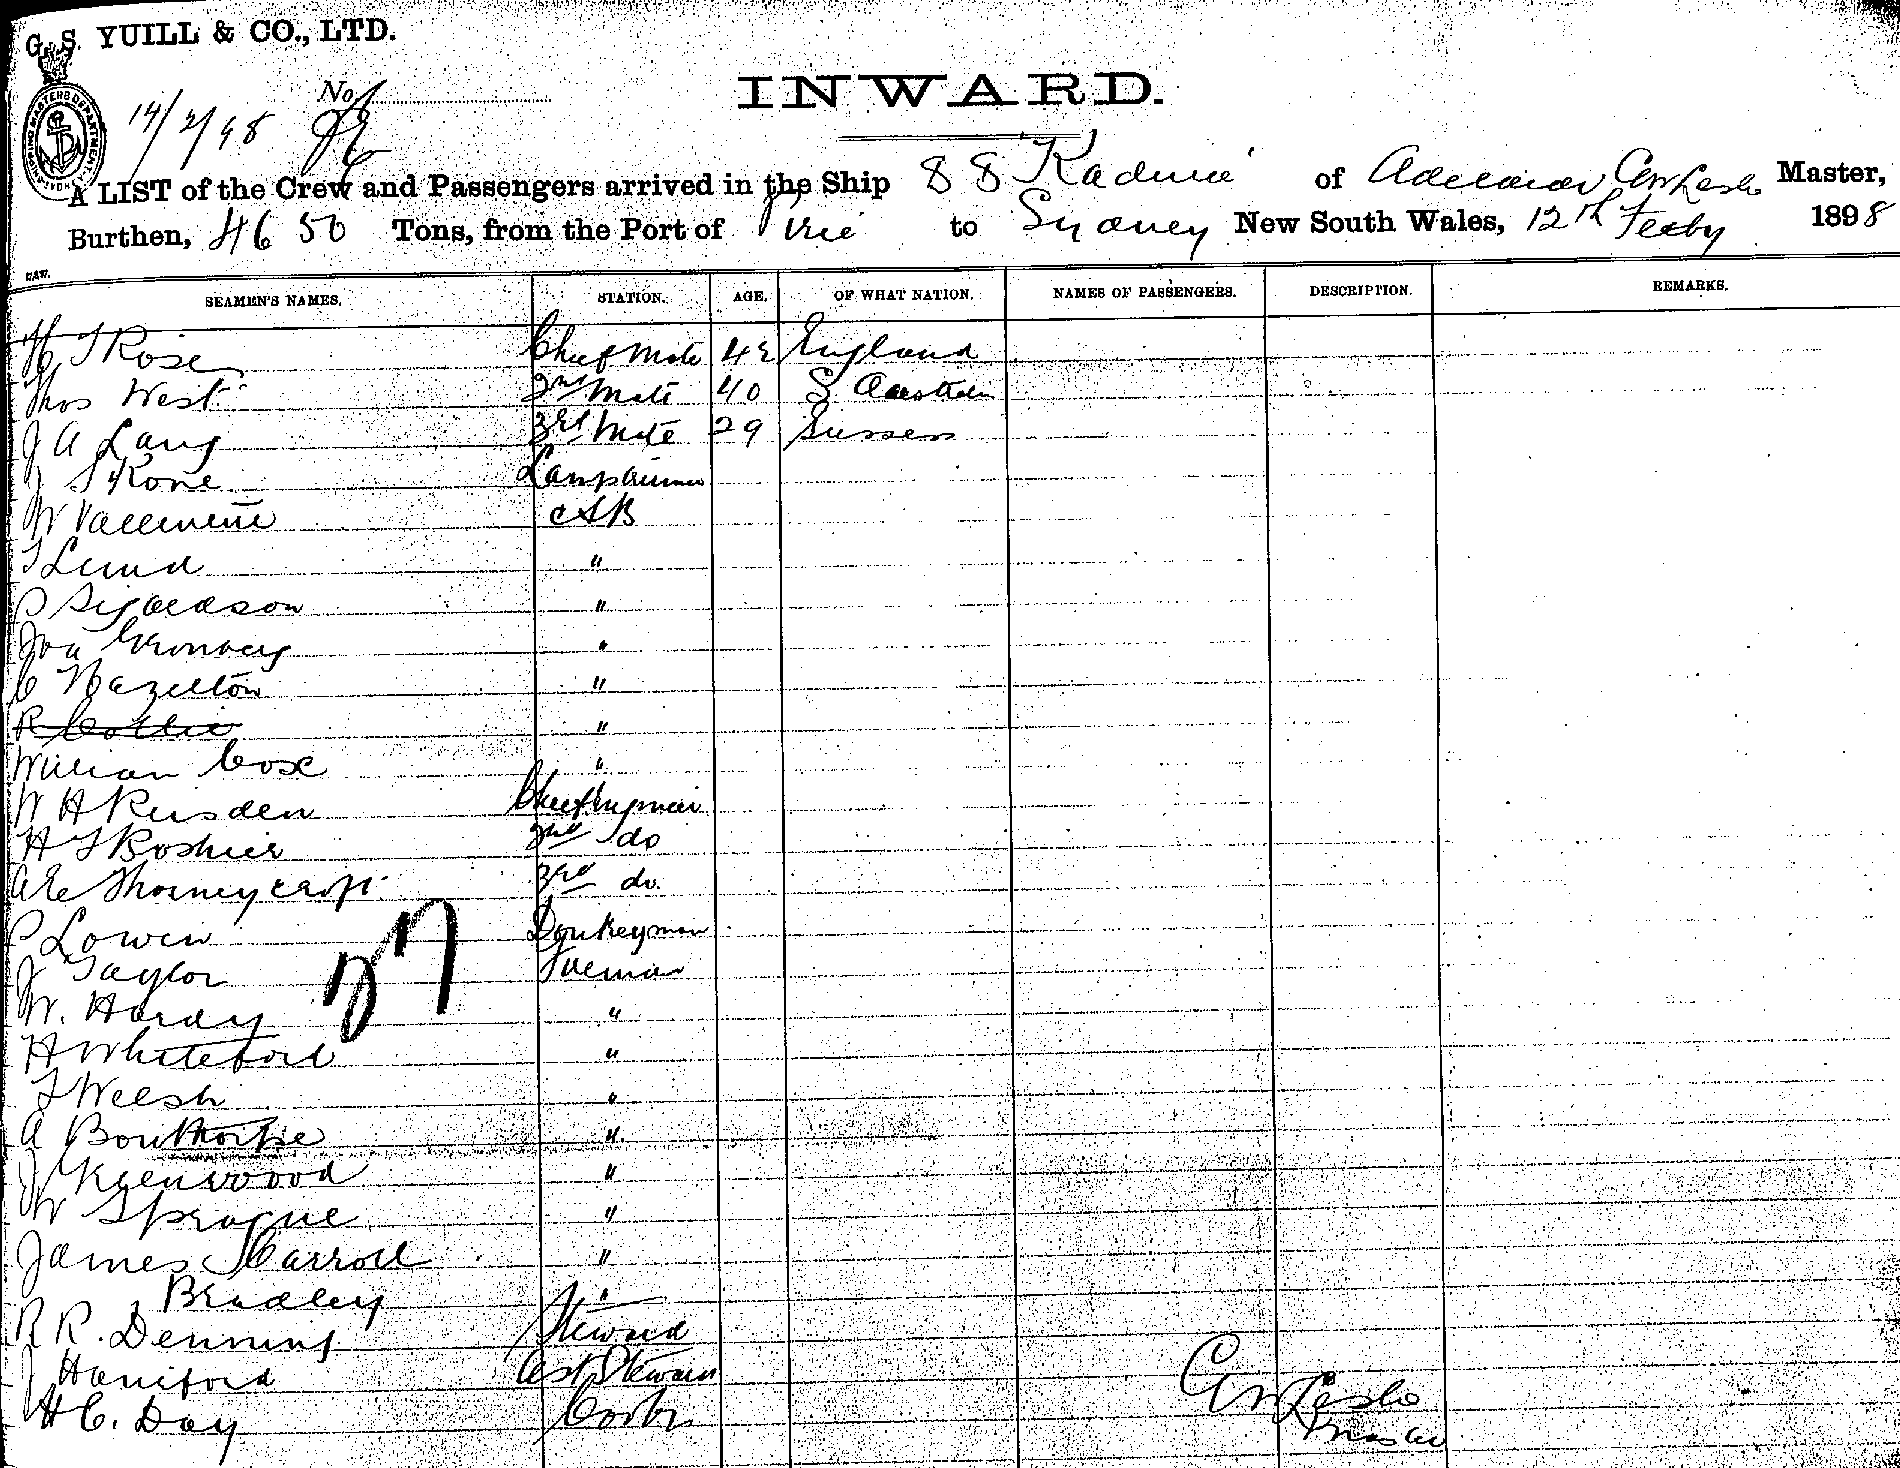 G. S. YUILL & CO., LTD.
No.
14/2/98
INWARD.
A LIST of the Crew and Passengers arrived in the Ship SS Kadina of Adelaide Leslie Master,
Burthen, 4650 Tons, from the Port of Pirie to Sydney New South Wales, 12th Feby 1898
SEAMEN'S NAMES. STATION. AGE. OF WHAT NATION. NAMES OF PASSENGERS. DESCRIPTION. REMARKS.
Rose Chief Mate 42 England
Thos West 2nd Mate 40 S Australia
J A Lang 3rd Mate 29 Sussex
J Lamptrimmer
W Valentine AB
T Lund "
P Sigardson "
Gronberg "
C Hazelton "
R Collie "
William Cox "
W H Rusden Chief Engineer
H T Boshier 2nd do
A E Thorneycroft 3rd do.
P Lowen Donkeyman
J Taylor Fireman
W. Hardy "
H Whiteford "
T Welsh "
A Bonthorpe "
J Greenwood "
W Sprague "
James Carroll "
Bradley "
R R. Denning Steward
J Haniford Asst Steward
H C. Day Cook
Leslie
Master